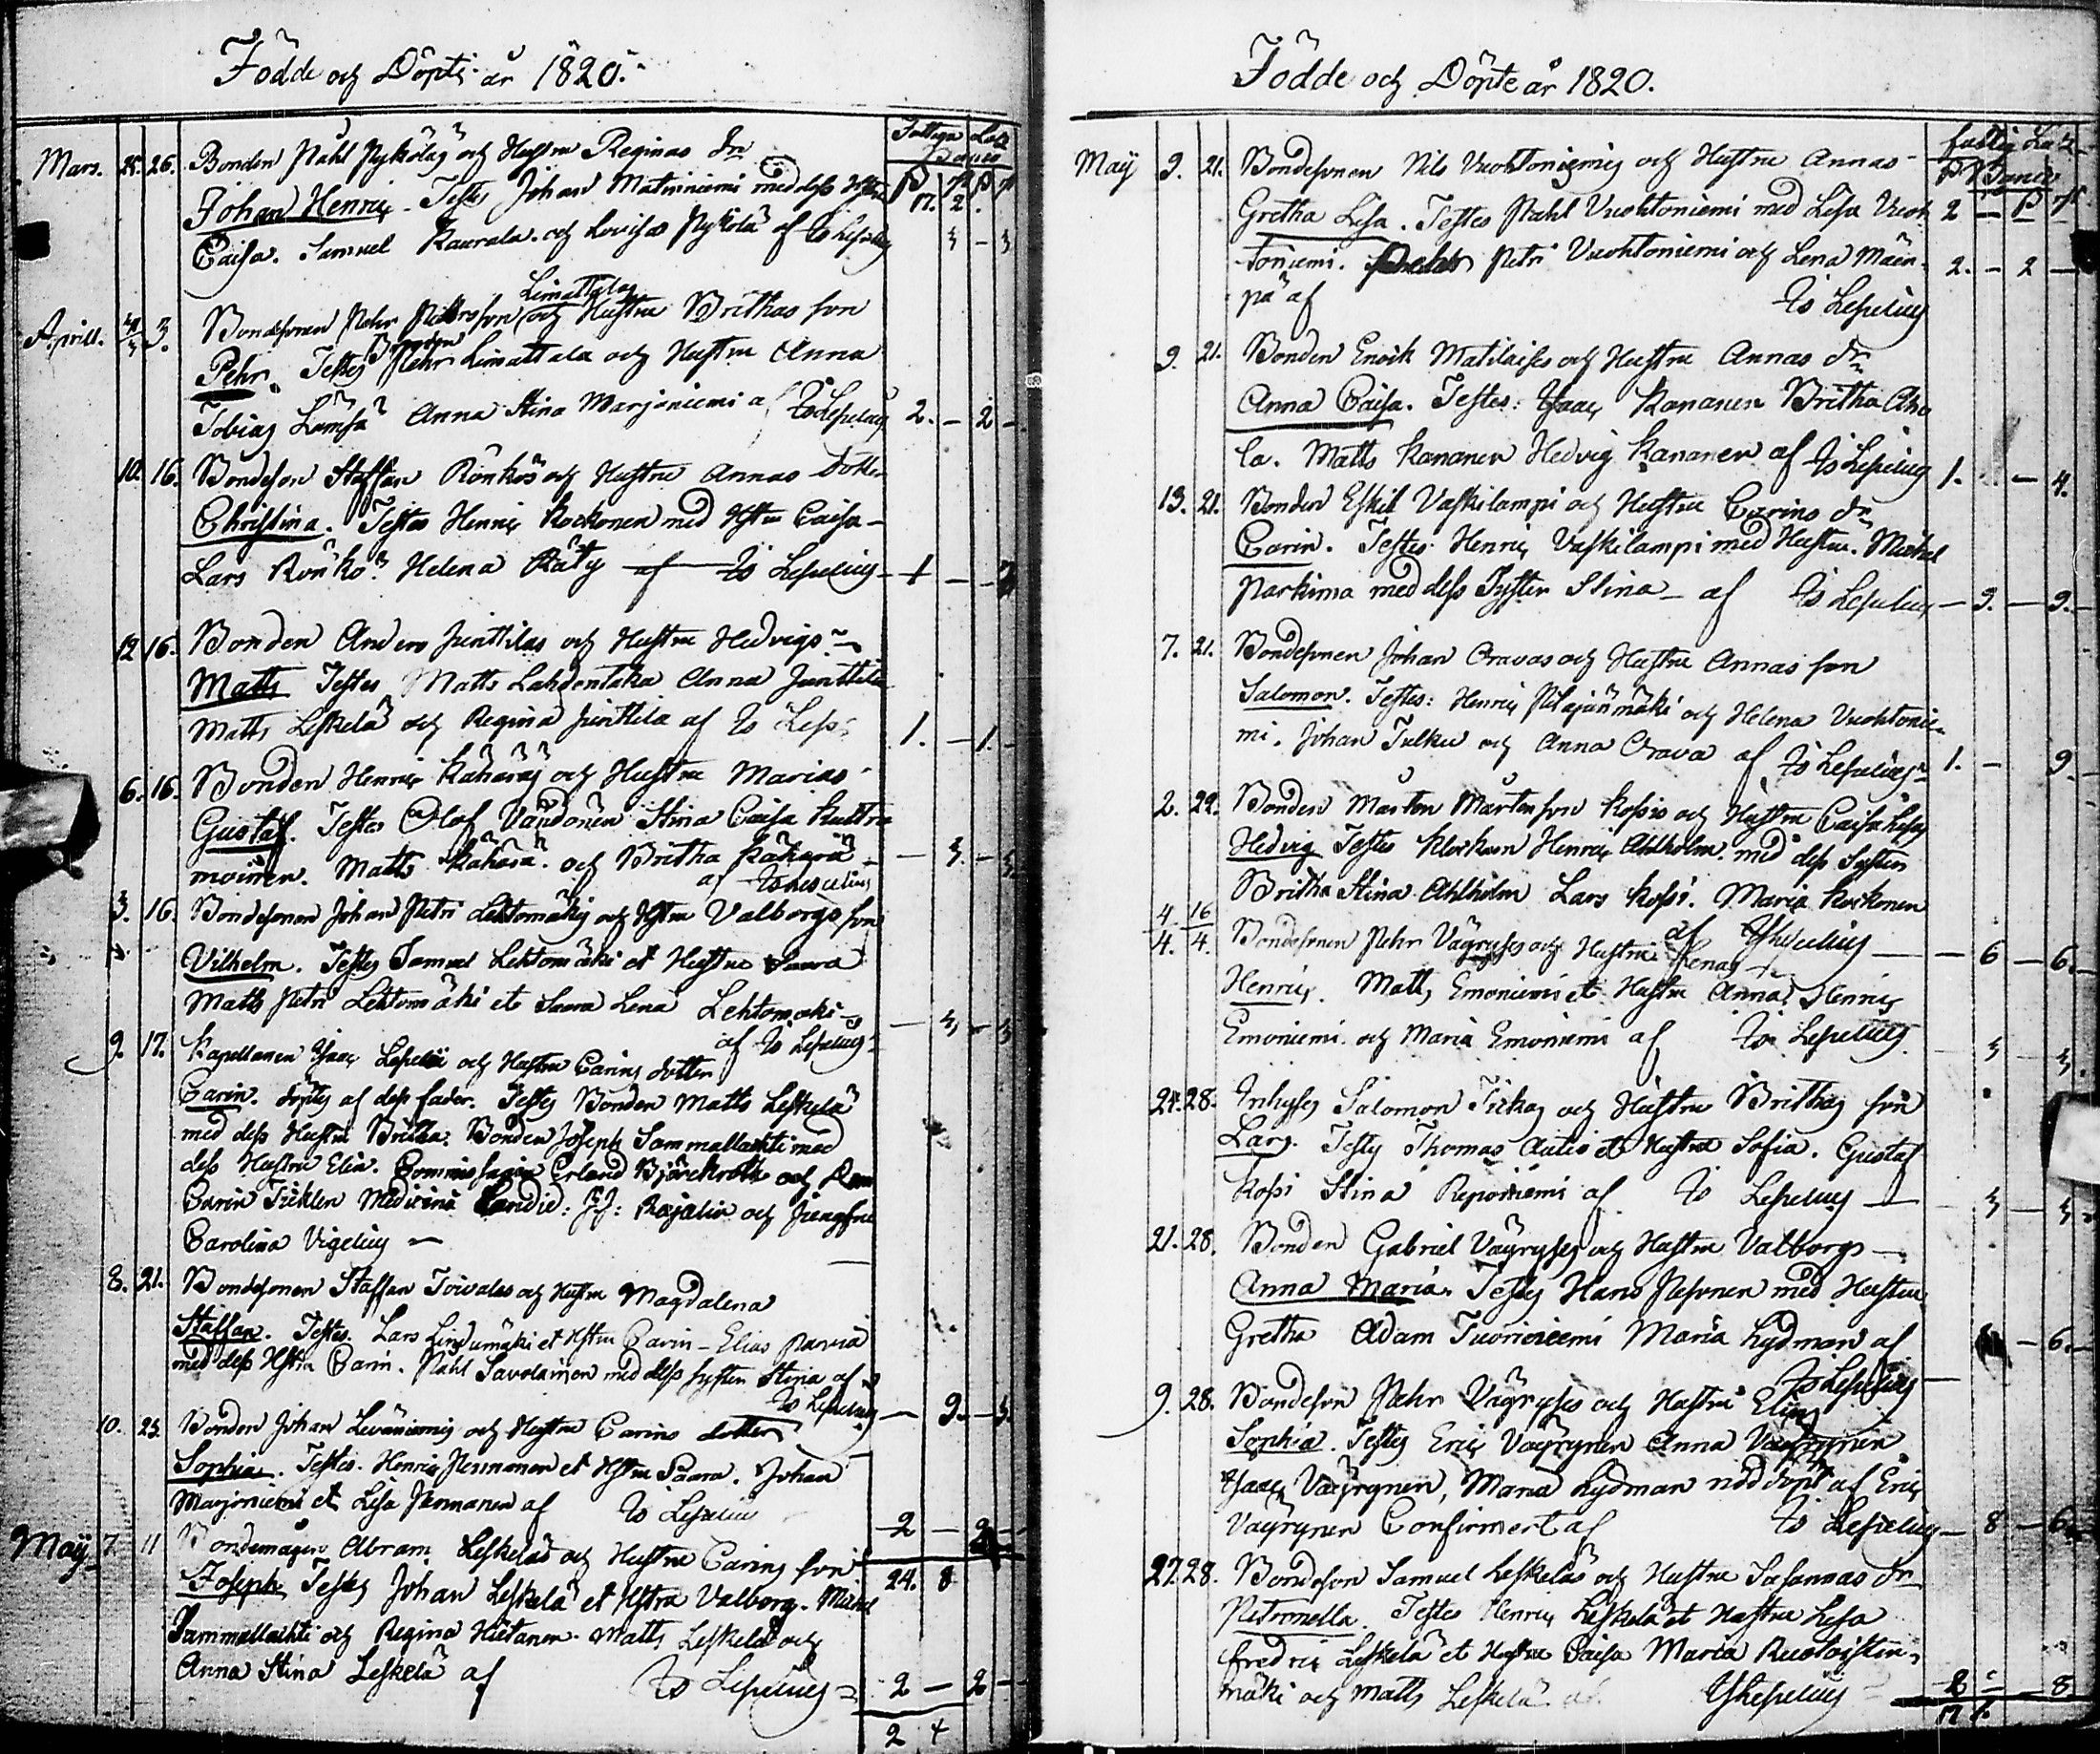 Födde och Döpte år 1820.
Fattiga Lass
Pauvres
Mars. 25. 26. Bonden Påhl Myköläs och Hustru Reginas dr
Johan Henric. Testes Johan Matinniemi med dess Hstru 17. 2.
Caisa. Samuel Kaurala och Lovisa Mykölä af Is Lesselius 3 - 3
Limattalas
Aprill. 3. Bondesonen Pehr Pehrsson och Hustru Brithas son
Bonden
Pehr. Testes Pehr Limattala och Hustru Anna
Tobias Lämsä Anna Stina Marjoniemi af Is Lesselius 2. - 2 -
10. 16. Bondeson Staffan Rönkös och Hustru Annas dotter
Christina. Testes Henric Kockonen med Hstru Caisa -
Lars Rönkö. Helena Räty af Is Lesselius - 1 - -
12 16. Bonden Anders Junttilas och Hustru Hedvigs
Matts Testes Matts Lahdentaka Anna Junttila
Matts Leskelä och Regina Junttila af Is Less: 1. - 1. -
6. 16. Bonden Henric Käkäräs och Hustru Marias
Gustaf. Testes Olof Vändönen Stina Caisa Kuttu
moinen. Matts Käkärä och Britha Käkärä - - 3. - 3
af Is Lesselius
3. 16. Bondesonen Johan Petri Lehtomäkis och Hstru Valborgs son
Vilhelm. Testes Samuel Lehtomäki et Hustru Saara
Matts Petri Lehtomäki et Saara Lena Lehtomäki -
af Is Lesselius - 3 - 3
9. 17. Kapellanen Isaac Lesselii och Hustru Carins dotter
Carin. döptes af dess fader. Testes Bonden Matts Leskelä
med dess Hustru Britha. Bonden Joseph Sammallachti med
dess Hustru Elin. Commissarien Erland Björckroth och
Carin Ticklen Medicinæ Candid: J.J: Rajalin och Jungfru
Carolina Vigelius -
8. 21. Bondesonen Staffan Toivolas och Hustru Magdalena
Staffan. Testes. Lars Lindumäki et Hstru Carin - Elias Parvia
med dess Hstru Carin. Påhl Savolainen med dess syster Stina af
Is Lesselius - 9. - 3.
10. 23. Bonden Johan Leväniemis och Hustru Carins dotter
Sophia. Testes. Henric Pennanen et Hstru Saara. Johan
Marjoniemi et Lisa Pennanen af Is Lesselius 2 - 2 -
24. 8
Maij 7. 11 Bondemågen Abram Leskeläs och Hustru Carins son
Joseph Testes Johan Leskelä et Hstru Valborg. Michel
Sammallachti och Regina Hietanen. Matts Leskelä och
Anna Stina Leskelä af Is Lesselius 2 - 2 -
2 4
Födde och Döpte år 1820.
fattig Lass
Pauvres
Maij 9. 21. Bondesonen Nils Vuohtoniemis och Hustru Annas
Gretha Lisa. Testes Påhl Vuohtoniemi med Lisa Vuoh 2 -
toniemi. Petri Vuohtoniemi och Lena Mäen 2. - 2 -
pä af Is Lesselius
9. 21. Bonden Enock Matilaises och Hustru Annas dr
Anna Caisa. Testes: Isaac Kananen Britha Aho
la. Matts Kananen Hedvig Kananen af Is Lesselius 1. - 4.
13. 21. Bonden Eskil Vaskilampi och Hustru Carins dr
Carin. Testes Henric Vaskilampi med Hustru. Michel
Parkima med dess Syster Stina - af Is Lesselius - 9. - 9. -
7. 21. Bondesonen Johan Oravas och Hustru Annas son
Salomon. Testes: Henric Pilajänmäki och Helena Vuohtonie-
mi. Johan Tulku och Anna Orava af Is Lesselius 1. - 9.
2. 22. Bonden Mårten Mårtensson Kossis och Hustru Caisa Lisas
Hedvig Testes Klockaren Henric Ahlholm med dess Syster
Britha Stina Ahlholm Lars Kossi. Maria Kockonen
af Is Lesselius - - 6 - 6. -
4/4. 16/4. Bondesonen Pehr Väyryses och Hustru Lenas
Henric. Matts Emoniemi et Hustru Anna. Henric
Emoniemi och Maria Emoniemi af Is Lesselius 3 - 3.
24. 28. Inhyses Salomon Tickas och Hustru Brithas son
Lars. Testes Thomas Autio et Hustru Sofia. Gustaf
Kossi Stina Reponiemi af Is Lesselius - 3 - 3 -
21. 28. Bonden Gabriel Väyryses och Hustru Valborgs -
Anna Maria. Testes Hans Pesonen med Hustru
Gretha Adam Tuorinniemi Maria Lydman af - 6. -
Is Lesselius -
9. 28. Bondeson Pehr Väyryses och Hustru Elins
Sophia. Testes Eric Väyrynen Anna Väyrynen
Isaac Väyrynen, Maria Lydman nöddöpt af Eric
Väyrynen Confirmert af Is Lesselius - 8 - 6 -
27. 28. Bondeson Samuel Leskeläs och Hustru Susannas dr
Petronella. Testes Henric Leskelä et Hustru Lisa
Fredric Leskelä et Hustru Caisa Maria Ruotoisten-
mäki och Matts Leskelä af Is Lesselius - 2 - - 8